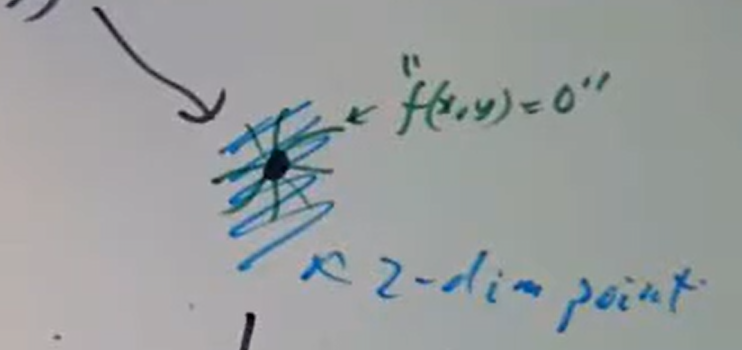 "f(x,y)=0"
2-dim point